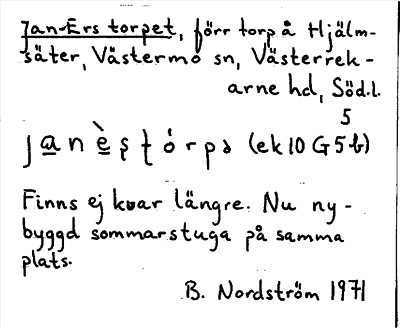 Jan-Ers torpet, förr torp å Hjälm-
säter, Västermo sn, Västerrek-
arne hd, Söd.l.
5
j a n è ş ţ ó r p ə (ek 10 G 5 b)
Finns ej kvar längre. Nu ny-
byggd sommarstuga på samma
plats.
B. Nordström 1971